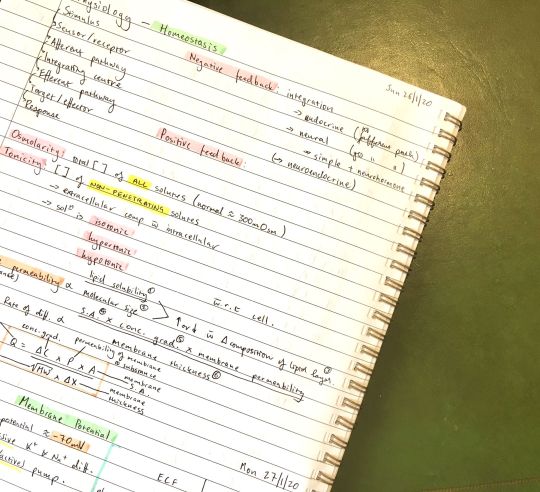 Physiology — Homeostasis
Sun 26/1/20
Stimulus
Sensor/receptor
Afferent pathway
Integrating centre
Efferent pathway
Target/effector
Response
Negative feedback: integration
→ endocrine
→ neural
→ simple + neurohormone
(→ neuroendocrine)
Positive feedback:
Osmolarity: total [ ] of ALL solutes (normal ≈ 300mOsm)
Tonicity: [ ] of NON-PENETRATING solutes
→ extracellular comp w̄ intracellular
→ sol⁰ is isotonic
hypertonic
hypotonic
w.r.t cell.
permeability ∝ lipid solubility
molecular size
↑or↓ w̄ Δ composition of lipid layer
Rate of diff. ∝ S.A. × conc. grad. × membrane permeability
membrane thickness
conc. grad.
permeability of membrane
Q = ΔC × P × A
√MW × ΔX
membrane S.A.
membrane thickness
Membrane Potential
potential ≈ -70mV
K⁺ & Na⁺ diff.
(active) pump.
Mon 27/1/20
ECF